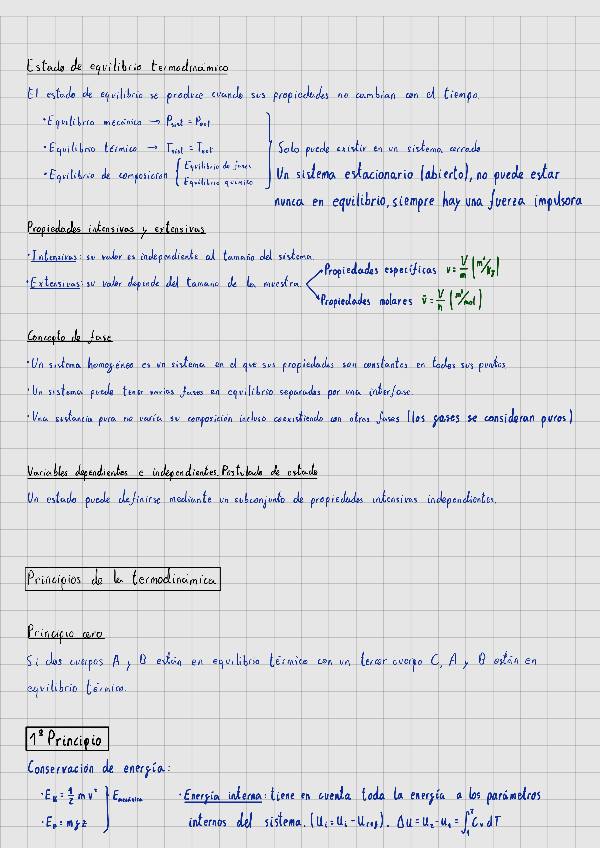 Estado de equilibrio termodinámico
El estado de equilibrio se produce cuando sus propiedades no cambian con el tiempo.
· Equilibrio mecánico → Psist = Pext
· Equilibrio térmico → Tsist = Text
· Equilibrio de composición { Equilibrio de fases
Equilibrio químico
Solo puede existir en un sistema cerrado
Un sistema estacionario (abierto), no puede estar
nunca en equilibrio, siempre hay una fuerza impulsora
Propiedades intensivas y extensivas
· Intensivas: su valor es independiente al tamaño del sistema.
· Extensivas: su valor depende del tamaño de la muestra.
Propiedades específicas v = V/m (m³/kg)
Propiedades molares v̄ = V/n (m³/mol)
Concepto de fase
· Un sistema homogéneo es un sistema en el que sus propiedades son constantes en todos sus puntos
· Un sistema puede tener varias fases en equilibrio separadas por una interfase.
· Una sustancia pura no varía su composición incluso coexistiendo con otras fases (los gases se consideran puros)
Variables dependientes e independientes. Postulado de estado
Un estado puede definirse mediante un subconjunto de propiedades intensivas independientes.
Principios de la termodinámica
Principio cero
Si dos cuerpos A y B están en equilibrio térmico con un tercer cuerpo C, A y B están en
equilibrio térmico.
1º Principio
Conservación de energía:
· EK = 1/2 m v²
· Ep = m g z
} Emecánica
· Energía interna: tiene en cuenta toda la energía a los parámetros
internos del sistema. (Ui = Ui - Uref). Δu = u2 - u1 = ∫₁² Cv dT